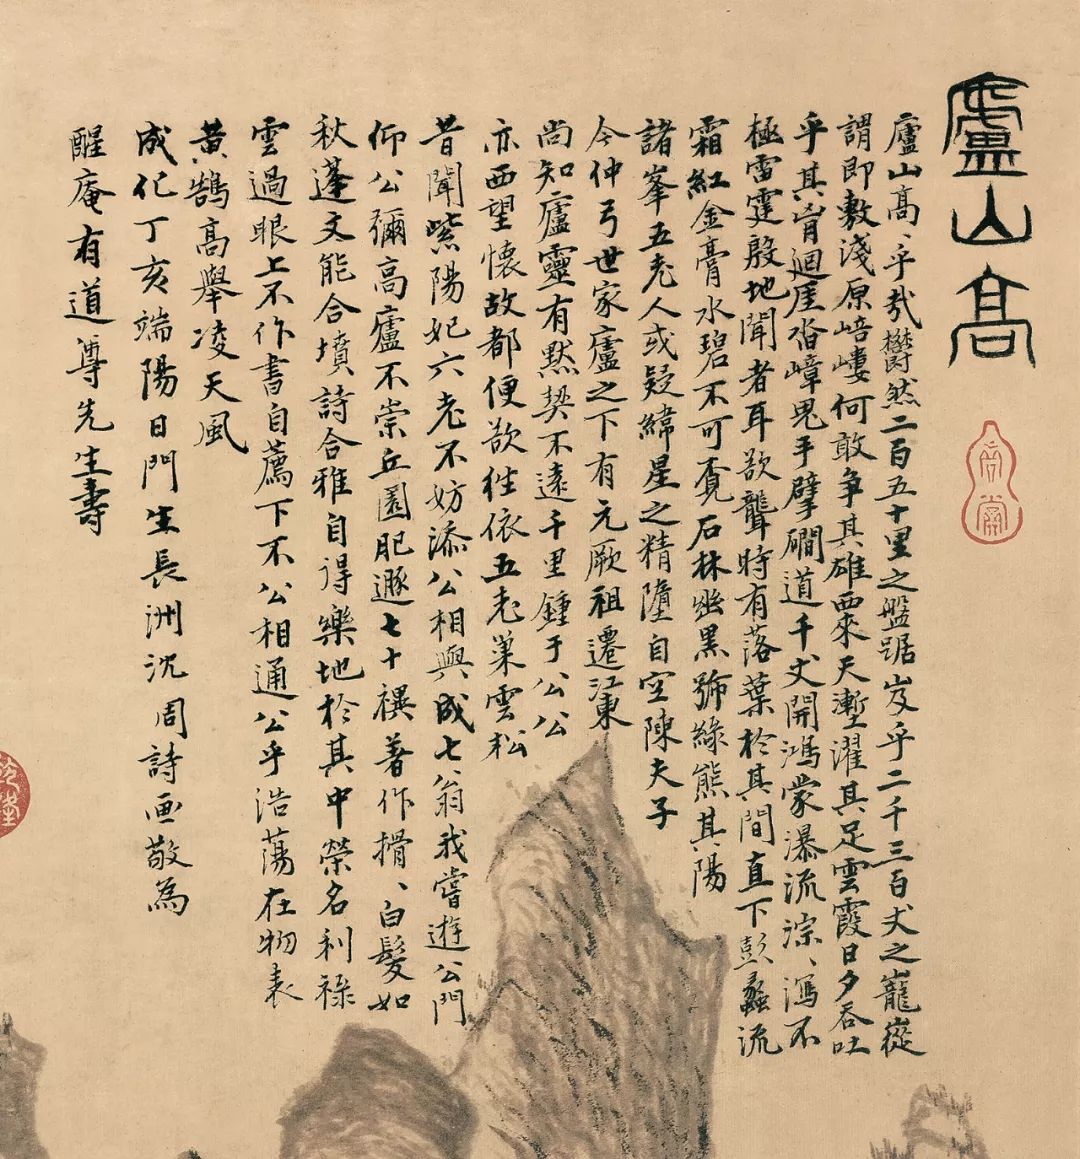 廬山高
廬山高、乎哉欝然二百五十里之盤踞岌乎二千三百丈之巃嵸
謂即敷淺原嵣嶁何敢爭其雄西來天塹濯其足雲霞日夕吞吐
乎其胷迴厓沓嶂鬼手擘磵道千丈開鴻蒙瀑流淙、瀉不
極雷霆殷地聞者耳欲聾時有落葉於其間直下彭蠡流
霜紅金膏水碧不可覔石林幽黑號綠熊其陽
諸峯五老人或疑緯星之精墮自空陳夫子
今仲弓世家廬之下有元厥祖遷江東
尚知廬靈有默契不遠千里鍾于公公
亦西望懷故都便欲往依五老巢雲松
昔聞紫陽妃六老不妨添公相與成七翁我嘗遊公門
仰公彌高廬不崇丘園肥遯七十禩著作搰、白髮如
秋蓬文能合墳詩合雅自得樂地於其中榮名利祿
雲過眼上不作書自薦下不公相通公乎浩蕩在物表
黃鵠高舉凌天風
成化丁亥端陽日門生長洲沈周詩画敬為
醒庵有道尊先生壽